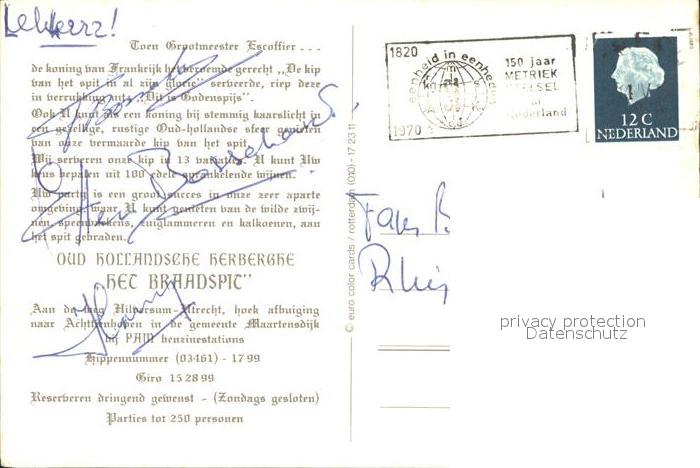 Toen Grootmeester Escoffier . . .
de koning van Frankrijk het beroemde gerecht „De kip
van het spit in al zijn glorie" serveerde, riep deze
in verrukking uit: „Dit is Godenspijs".
Ook U kunt als een koning bij stemmig kaarslicht in
een gezellige, rustige Oud-hollandse sfeer genieten
van onze vermaarde kip van het spit.
Wij serveren onze kip in 13 variaties. U kunt Uw
keus bepalen uit 100 edele sprankelende wijnen.
Uw party is een groot succes in onze zeer aparte
omgeving, waar U kunt genieten van de wilde zwij-
nen, speenvarkens, zuiglammeren en kalkoenen, aan
het spit gebraden.
OUD HOLLANDSCHE HERBERGHE
„HET BRAADSPIT"
Aan de weg Hilversum-Utrecht, hoek afbuiging
naar Achttienhoven in de gemeente Maartensdijk
bij PAM benzinestations
Hippennummer (03461) - 1799
Giro 15 28 99
Reserveren dringend gewenst - (Zondags gesloten)
Parties tot 250 personen
© euro color cards / rotterdam (010) - 17 23 11
1820
1970
eenheid in eenheden
150 jaar
METRIEK
STELSEL
in
Nederland
12 C
NEDERLAND
Fam.
privacy protection
Datenschutz